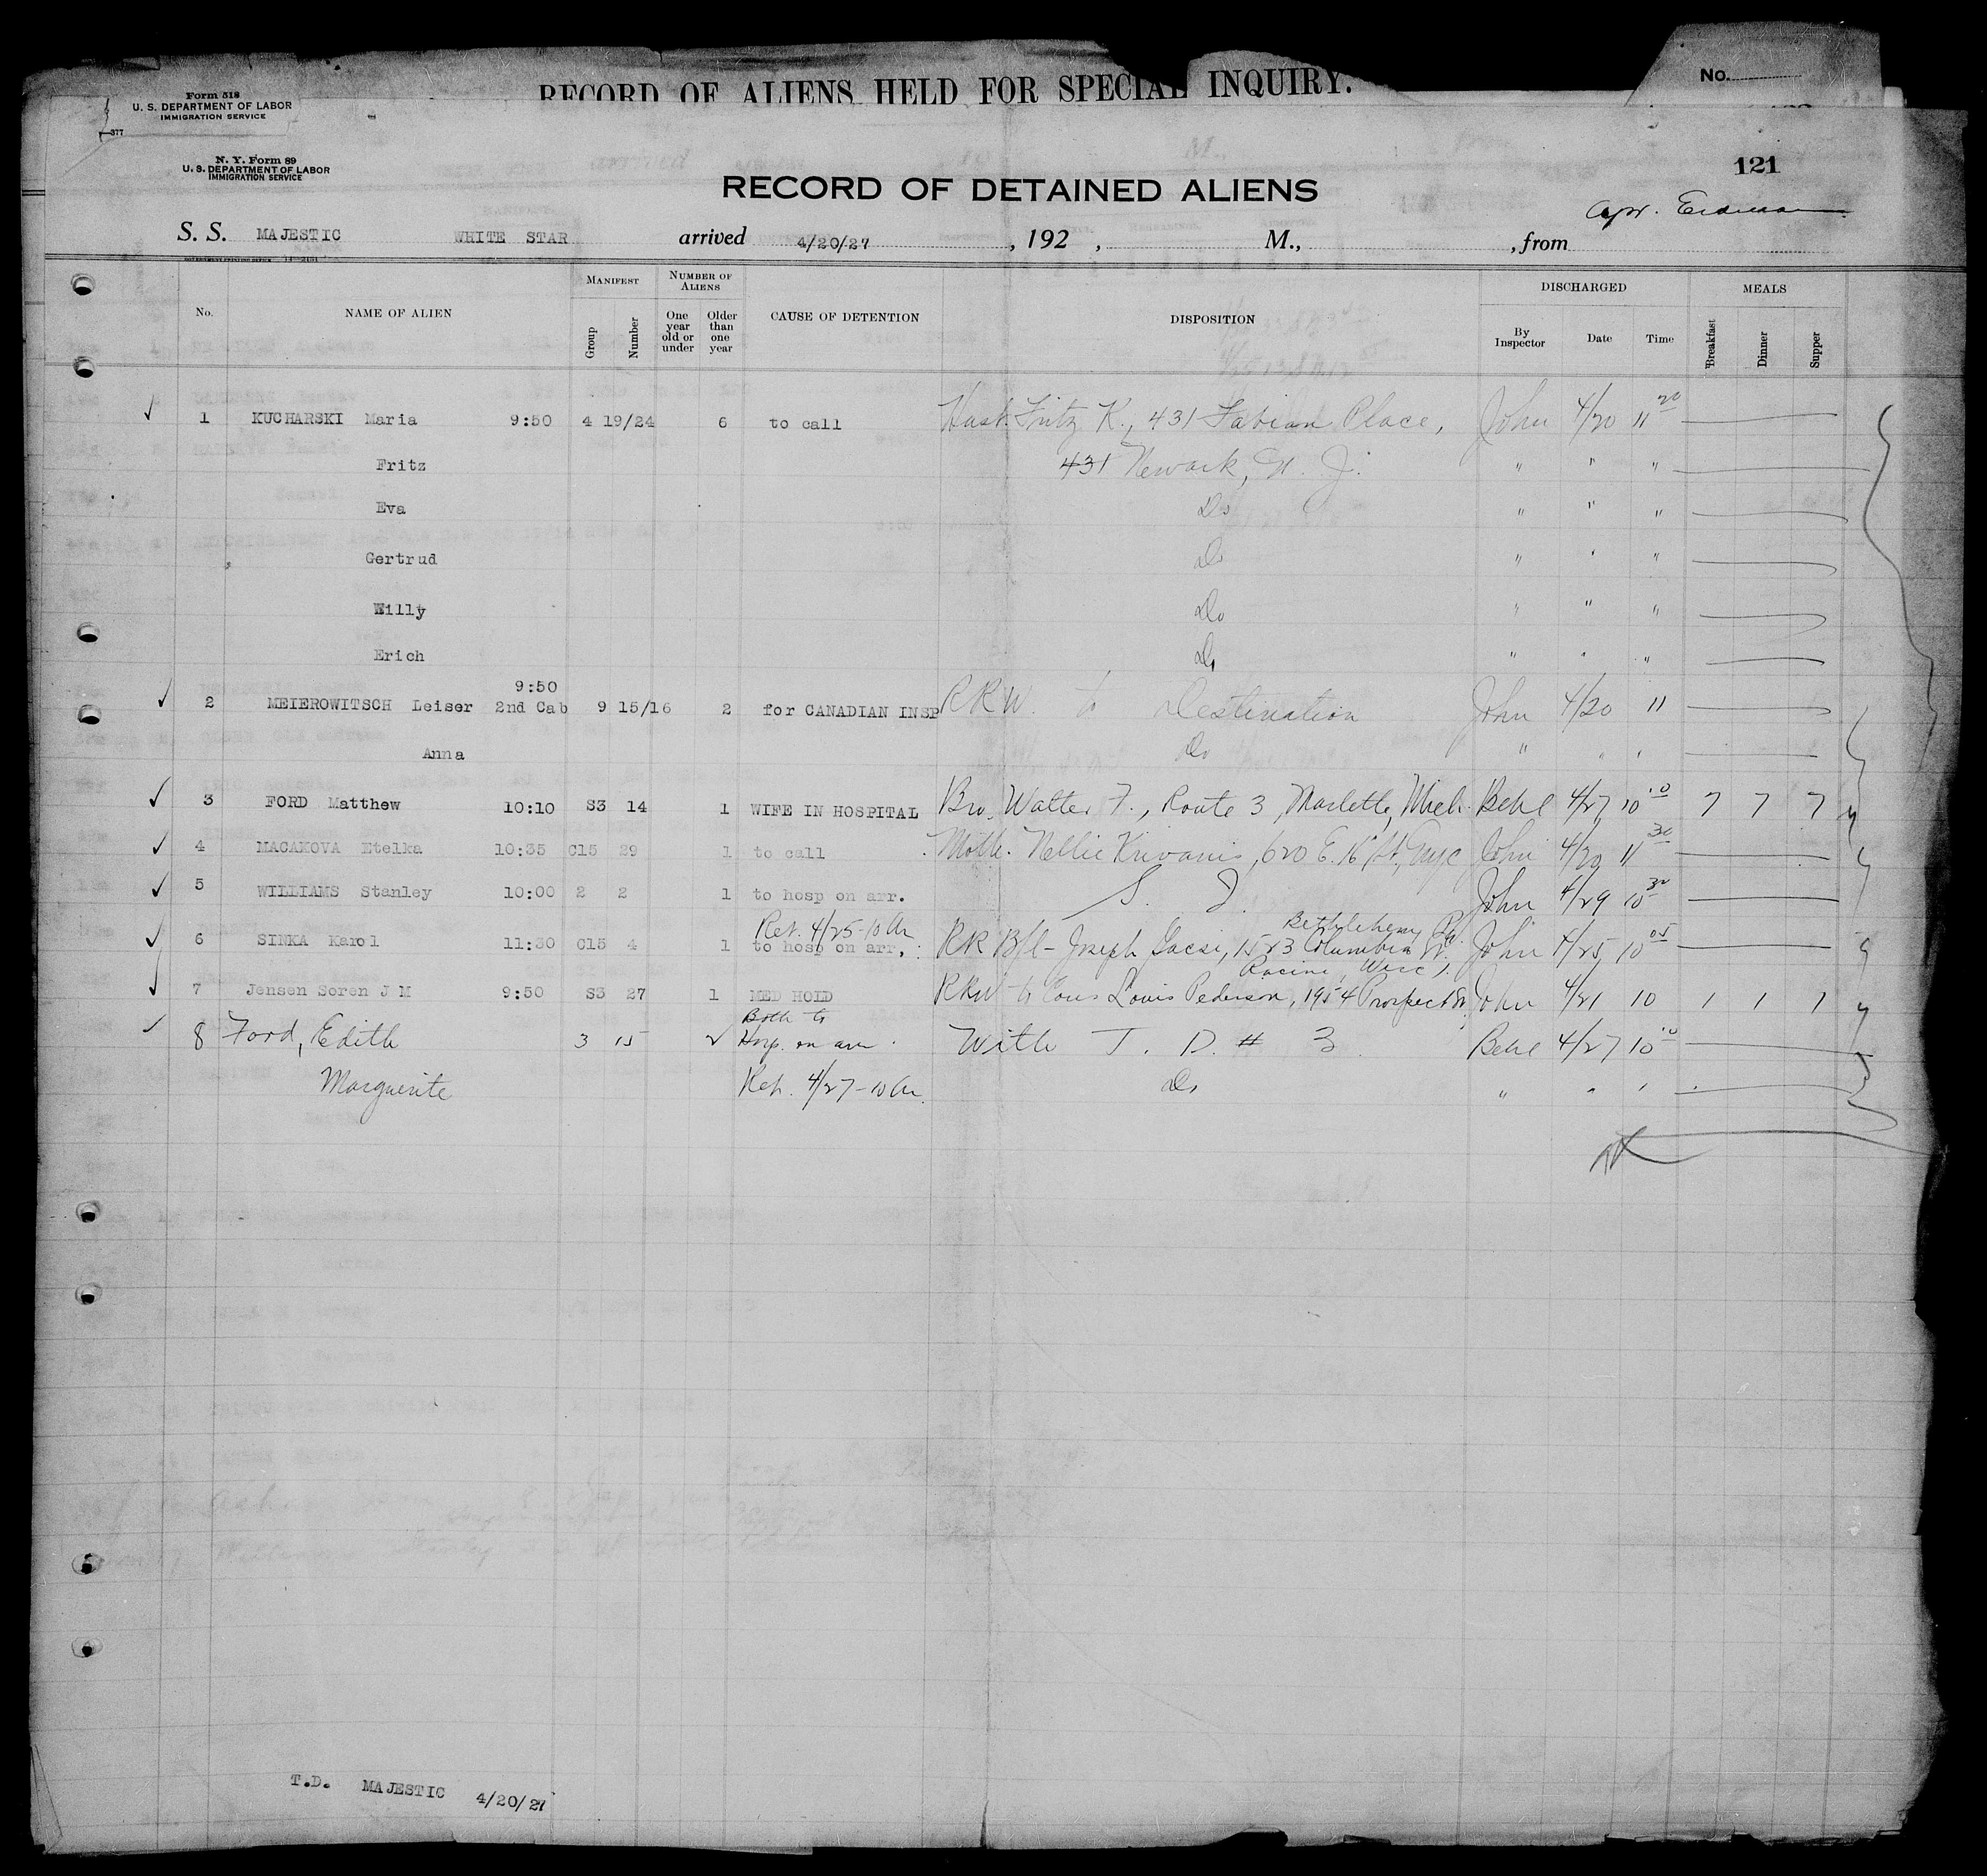 RECORD OF ALIENS HELD FOR SPECIAL INQUIRY.
No.
Form 518
U. S. DEPARTMENT OF LABOR
IMMIGRATION SERVICE
377
N. Y. Form 89
U. S. DEPARTMENT OF LABOR
IMMIGRATION SERVICE
121
RECORD OF DETAINED ALIENS
S. S. MAJESTIC WHITE STAR arrived 4/20/27, 192 , M., , from
No. NAME OF ALIEN MANIFEST Group Number NUMBER OF ALIENS One year old or under Older than one year CAUSE OF DETENTION DISPOSITION DISCHARGED By Inspector Date Time MEALS Breakfast Dinner Supper
1 KUCHARSKI Maria 9:50 4 19/24 6 to call Husb. Fritz K., 431 Fabian Place, John 4/20 11 20
Fritz 431 Newark, N. J. " " "
Eva Do " " "
Gertrud Do " " "
Willy Do " " "
Erich Do " " "
9:50
2 MEIEROWITSCH Leiser 2nd Cab 9 15/16 2 for CANADIAN INSP RRW. to Destination John 4/20 11
Anna Do " " "
3 FORD Matthew 10:10 S3 14 1 WIFE IN HOSPITAL Bro. Walter F., Route 3, Marlette, Mich. Behl 4/27 10 10 7 7 7
4 MACAKOVA Etelka 10:35 C15 29 1 to call Moth. Nellie Krivanis, 620 E. 16 St, NYC John 4/20 11 30
5 WILLIAMS Stanley 10:00 2 2 1 to hosp on arr. S. I. John 4/29 10 30
Ret. 4/25-10 Am Bethlehem, Pa.
6 SINKA Karol 11:30 C15 4 1 to hosp on arr. RR B/l - Joseph Gacsi, 1523 Columbia St. John 4/25 10 05
Racine, Wisc.
7 Jensen Soren J M 9:50 S3 27 1 MED HOLD RRW to Cous Louis Pederson, 1954 Prospect St. John 4/21 10 1 1 1
Both to
8 Ford, Edith 3 15 2 Hosp. on arr. With T. D. # 3 Behl 4/27 10 10
Marguerite Ret. 4/27-10 Am. Do " " "
T.D. MAJESTIC 4/20/27